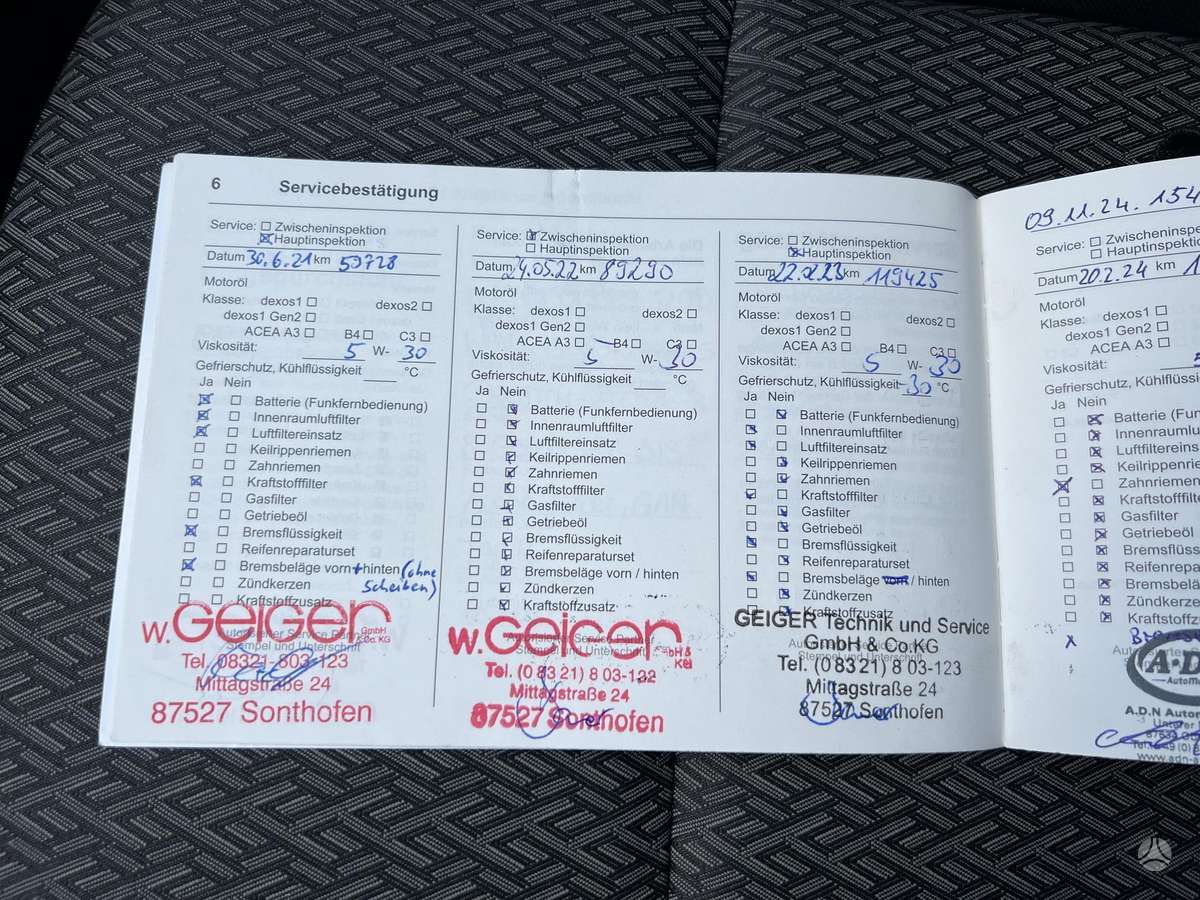 6 Servicebestätigung
Service: Zwischeninspektion
Hauptinspektion
Datum 30.6.21 km 59728
Motoröl
Klasse: dexos1 dexos2
dexos1 Gen2
ACEA A3 B4 C3
Viskosität: 5 W- 30
Gefrierschutz, Kühlflüssigkeit °C
Ja Nein
Batterie (Funkfernbedienung)
Innenraumluftfilter
Luftfiltereinsatz
Keilrippenriemen
Zahnriemen
Kraftstofffilter
Gasfilter
Getriebeöl
Bremsflüssigkeit
Reifenreparaturset
Bremsbeläge vorn + hinten (ohne
Scheiben)
Zündkerzen
Kraftstoffzusatz
w.GeiGer GmbH & Co. KG
Stempel und Unterschrift
Tel. 08321-803-123
Mittagstraße 24
87527 Sonthofen
Service: Zwischeninspektion
Hauptinspektion
Datum 24.05.22 km 89290
Motoröl
Klasse: dexos1 dexos2
dexos1 Gen2
ACEA A3 B4 C3
Viskosität: 5 W- 30
Gefrierschutz, Kühlflüssigkeit °C
Ja Nein
Batterie (Funkfernbedienung)
Innenraumluftfilter
Luftfiltereinsatz
Keilrippenriemen
Zahnriemen
Kraftstofffilter
Gasfilter
Getriebeöl
Bremsflüssigkeit
Reifenreparaturset
Bremsbeläge vorn / hinten
Zündkerzen
Kraftstoffzusatz
w.GeiGer
Autorisierter Service Partner
Stempel und Unterschrift
Tel. (0 83 21) 8 03-122
Mittagstraße 24
87527 Sonthofen
Service: Zwischeninspektion
Hauptinspektion
Datum km 119425
Motoröl
Klasse: dexos1 dexos2
dexos1 Gen2
ACEA A3 B4 C3
Viskosität: 5 W- 30
Gefrierschutz, Kühlflüssigkeit -30 °C
Ja Nein
Batterie (Funkfernbedienung)
Innenraumluftfilter
Luftfiltereinsatz
Keilrippenriemen
Zahnriemen
Kraftstofffilter
Gasfilter
Getriebeöl
Bremsflüssigkeit
Reifenreparaturset
Bremsbeläge vorn / hinten
Zündkerzen
Kraftstoffzusatz
GEIGER Technik und Service
GmbH & Co.KG
Tel. (0 83 21) 8 03-123
Mittagstraße 24
87527 Sonthofen
09.11.24. 154
Service: Zwischeninspe
Hauptinspe
Datum 20.2.24 km 1
Motoröl
Klasse: dexos1
dexos1 Gen2
ACEA A3
Viskosität:
Gefrierschutz, Kühlflüssi
Ja Nein
Batterie (Fu
Innenraumlu
Luftfilterein
Keilrippenri
Zahnriemen
Kraftstofffil
Gasfilter
Getriebeöl
Bremsflüss
Reifenrepa
Bremsbelä
Zündkerze
Kraftstoffz
A.D
AutoMo
A.D.N Autom
www.adn-a